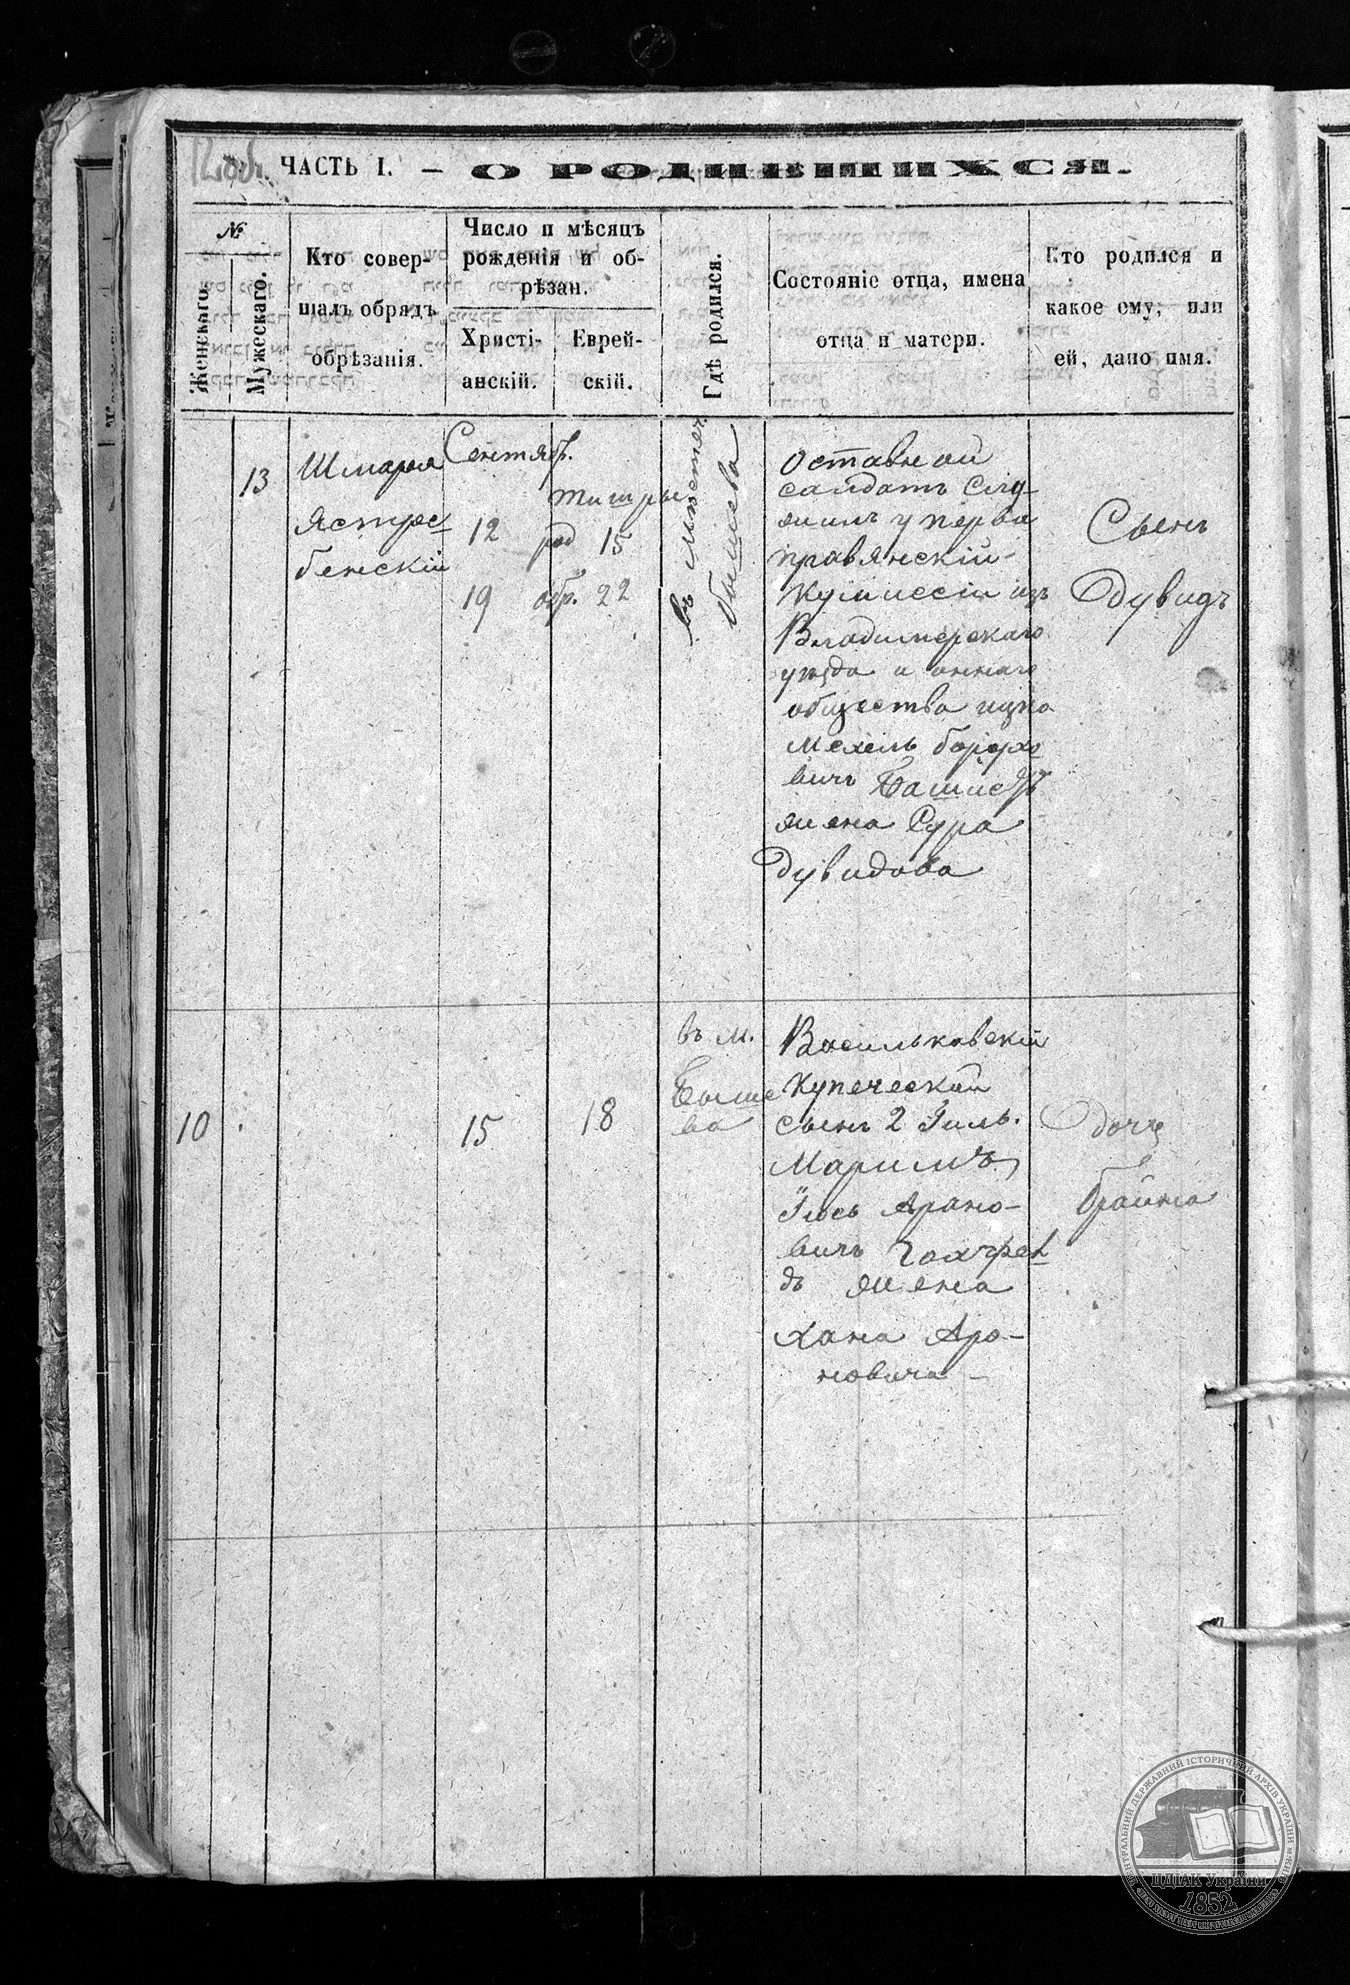 12об.
ЧАСТЬ I. – О РОДИВШИХСЯ.
№
Женскаго.
Мужескаго.
Кто совер-
шалъ обрядъ
обрѣзанія.
Число и мѣсяцъ
рожденія и об-
рѣзан.
Христі-
анскій.
Еврей-
скій.
Гдѣ родился.
Состояніе отца, имена
отца и матери.
Кто родился и
какое ему, или
ей, дано имя.
13
Шмарья
Ястре-
бенскій
Сентяб.
12
19
тишры
род 15
обр. 22
въ мѣстеч.
бышева
Оставной
салдатъ Слу-
жилъ у перва
правянскій
Кумиссіи изъ
Владимерскаго
уезда и оннаго
общества ицко
Мехель борухо
вичъ
жена Сура
Дувидова
Сынъ
Дувидъ
10
15
18
въ м.
Быше
ва
Васильковскій
Купеческій
сынъ 2 Гиль.
Іось Арано-
вичъ
дъ жена
Хана Аро-
новича
дочь
брайна
ЦЕНТРАЛЬНИЙ ДЕРЖАВНИЙ ІСТОРИЧНИЙ АРХІВ УКРАЇНИ
ЦДІАК України
1852